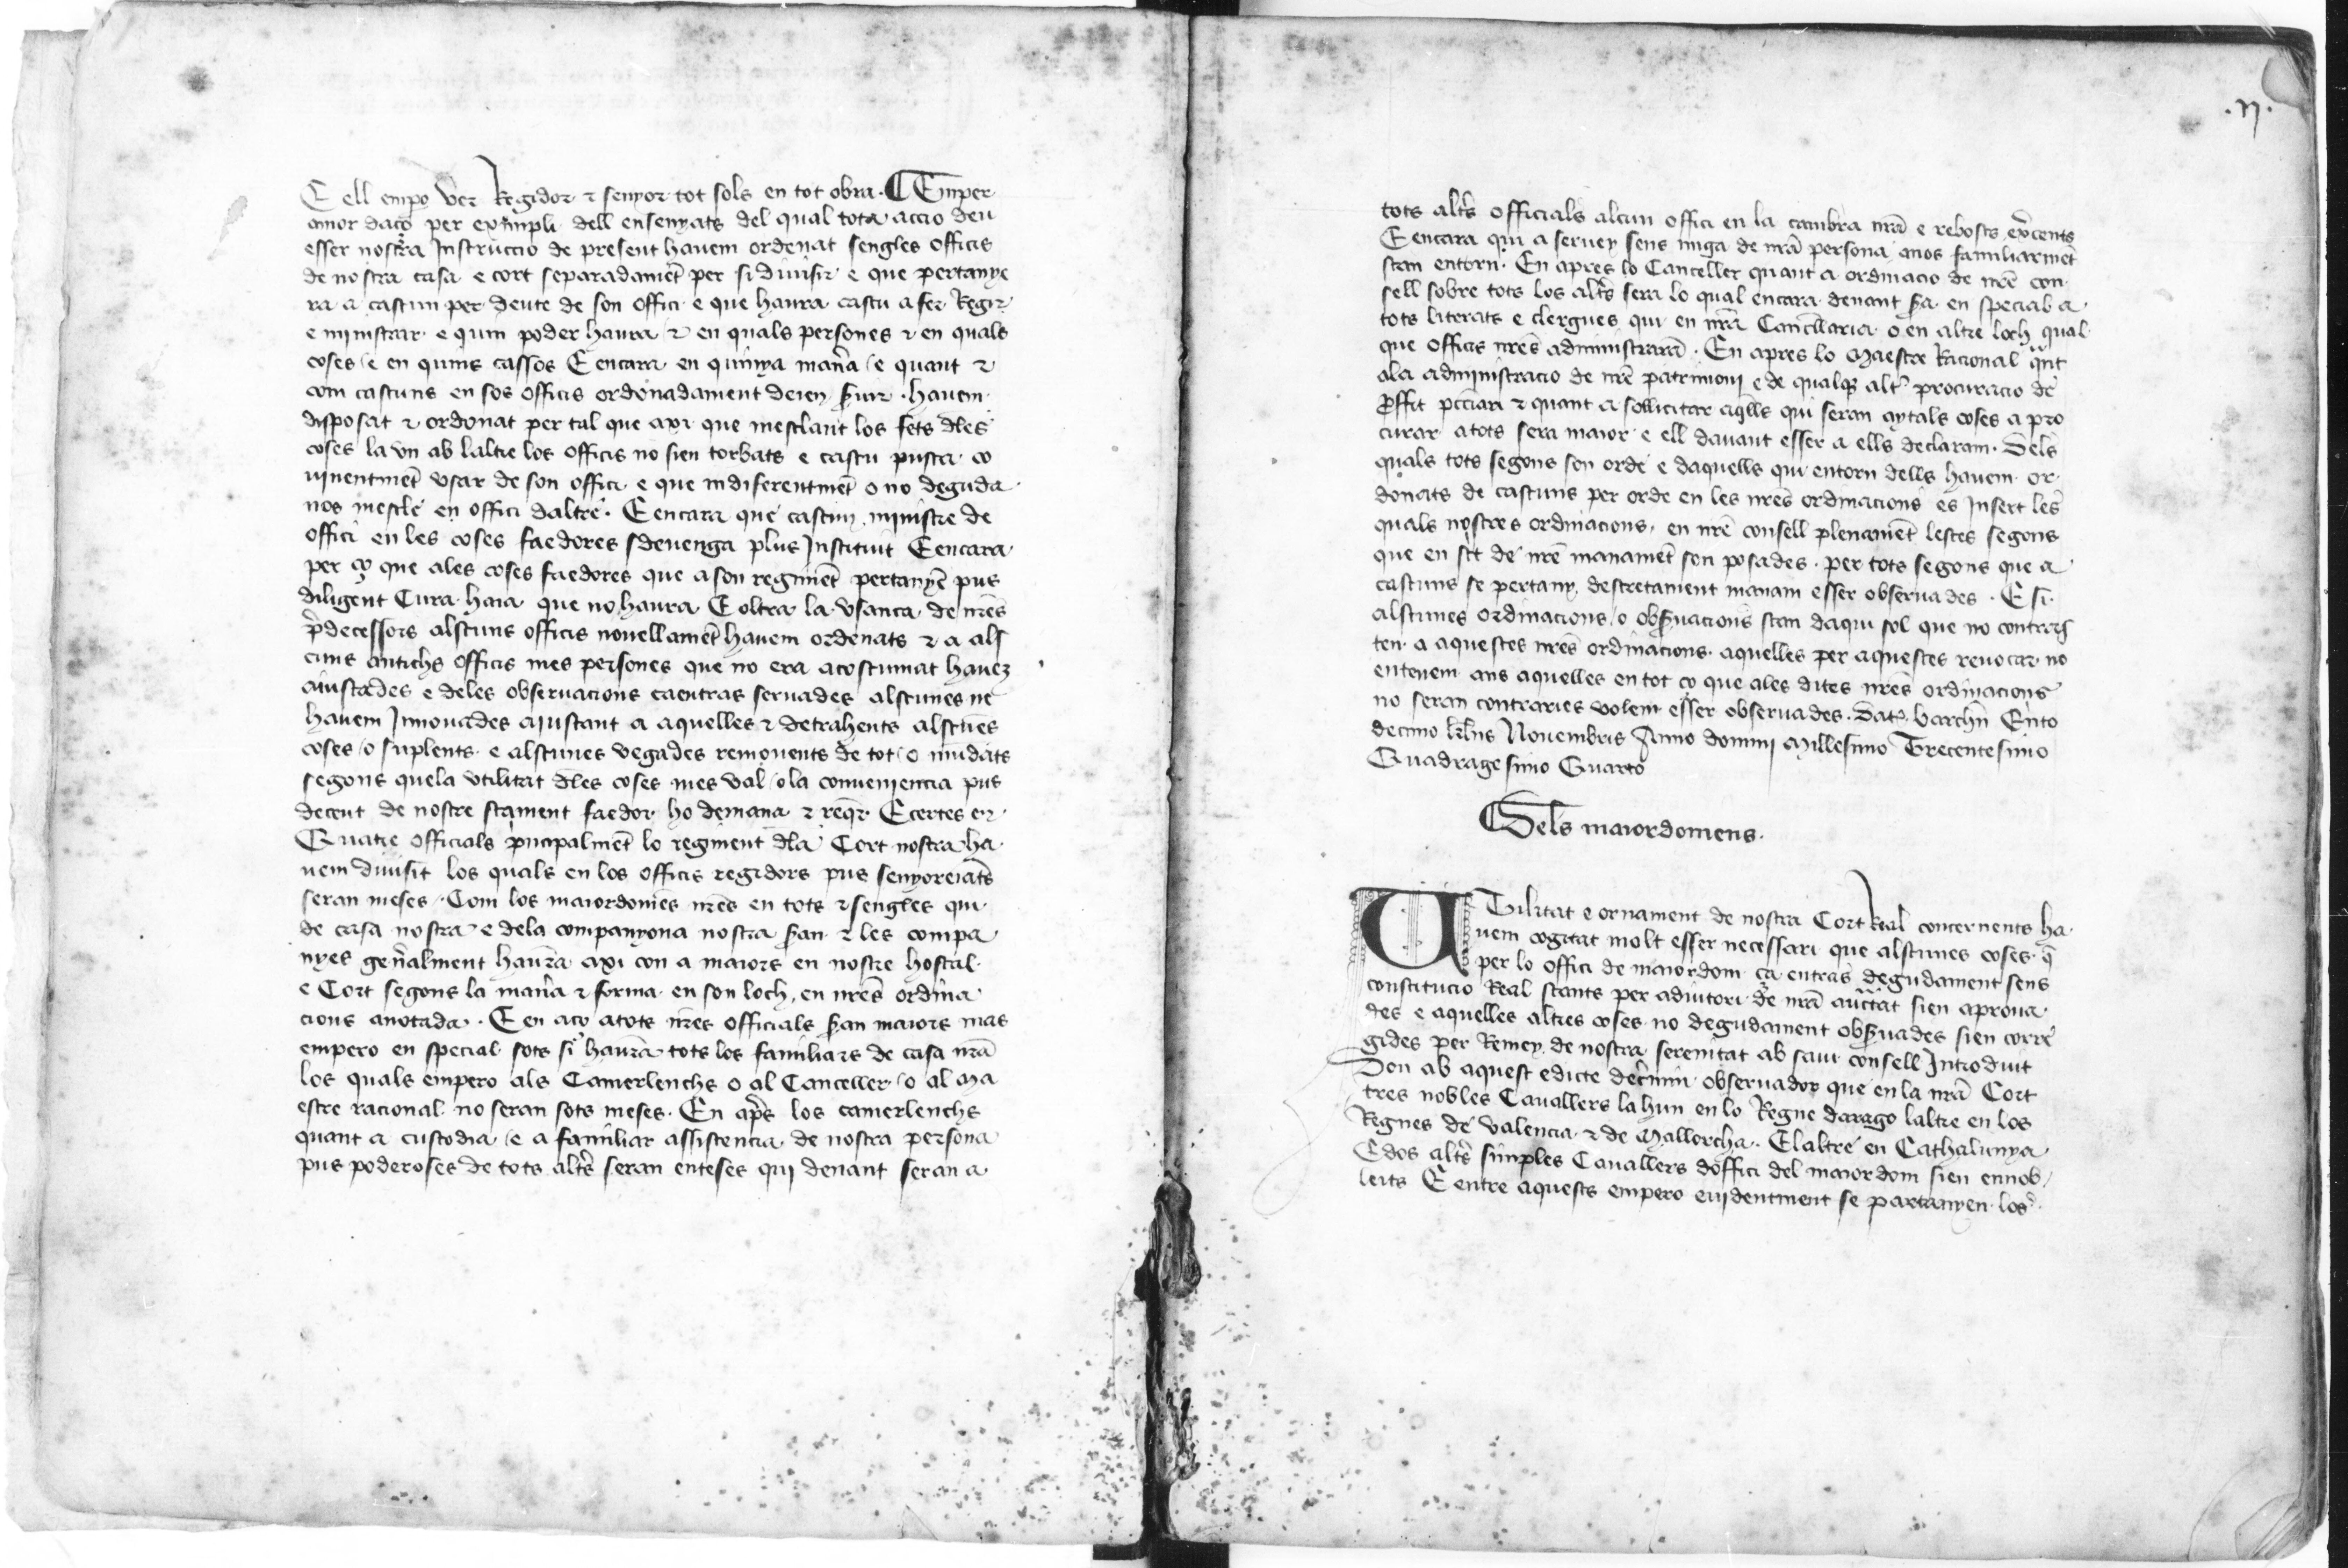 E ell empo ver Regidor ⁊ senyor tot sols en tot obra. ¶ Emper
amor daço per eximpli dell ensenyats del qual tota accio deu
esser nostra Instruccio de present havem ordenat sengles officis
de nostra casa e cort separadamet̄ per si divisir e que pertanye
ra a cascun per deute de son offici e que haura cascu a fer Regir
e ministrar e quin poder haura ⁊ en quals persones ⁊ en quals
coses / e en quins cassos E encara en quinya man̄a / e quant ⁊
com cascuns en sos officis ordonadament deien ẜuir . havem
disposat ⁊ ordonat per tal que axi que mesclant los fets dl̄es
coses la vn ab laltre los officis no sien torbats e cascu pusca co
uinentmet̄ vsar de son offici e que indiferentmet̄ o no deguda
nos mescle en offici daltre. E encara que cascun ministre de
offici en les coses faedores sdeuenga plus Instituit E encara
per ço que ales coses faedores que ason regimet̄ pertanyē pus
diligent Cura haia que no haura E oltra la vsanca de nr̄es
p̄decessors alscuns officis nouellamet̄ havem ordenats ⁊ a als
cuns antichs officis mes persones que no era acostumat havez
aiustades e deles observacions çaentras servades alscunes ne
havem Innouades aiustant a aquelles ⁊ detrahents alscūes
coses / o suplents e alscunes vegades remouents de tot / o mudats
segons quela vtilitat dl̄es coses mes val / o la conveniencia pus
decent de nostre stament faedor ho demana ⁊ req̄r. E certes en
Quatre officials p̄ncipalmet̄ lo regiment dl̄a Cort nostra ha
uem divisit los quals en los officis regidors pus senyoreiats
seran meses. Com los maiordomēs nr̄es en tots ⁊ sengles qui
de casa nostra e dela companyona nostra ẜan ⁊ les compa
nyes gen̄alment haurā axi con a maiors en nostre hostal
e Cort segons la man̄a ⁊ forma en son loch, en nr̄es ordina
cions anotada. E en aço atots nr̄es officials ẜan maiors mas
empero en special sots si haurā tots los familiars de casa nr̄a
los quals empero als Camerlenchs o al Canceller / o al Ma
estre racional no seran sots meses. En ap̄s los camerlenchs
quant a custodia / e a familiar assistencia de nostra persona
pus poderoses de tots alt̄s seran enteses qui denant seran a
.II.
tots alt̄s officials alcun offici en la cambra nr̄a e rebosts ex̄cents
E encara qui a seruey sens miga de nr̄a persona anos familiarmet̄
stan entorn. En apres lo Canceller quant a ordinacio de nr̄e con
sell sobre tots los alt̄s sera lo qual encara denant ẜa en special a
tots literats e clergues qui en nr̄a Cancell̄aria o en altre loch qual
que officis nr̄es administrarā. En apres lo Maestre Racional q̄nt
ala administracio de nr̄e patrimoni e de qualq̄ alt̄ procuracio de
ꝓffit pec̄iari ⁊ quant a sollicitar aq̄lls qui seran aytals coses a pro
curar atots sera maior e ell davant esser a ells declaram. Dels
quals tots segons son orde e daquells qui entorn dells havem or
donats de cascuns per orde en les nr̄es ordinacions es Insert les
quals nostres ordinacions, en nr̄e consell plenamet̄ lestes segons
que en sc̄t de nr̄e manamet̄ son posades per tots segons que a
cascuns se pertany, descretament manam esser observades. E si
alscunes ordinacions / o obẜuacions stan daqui sol que no contrars
ten a aquestes nr̄es ordinacions aquelles per aquestes revocar no
entenem ans aquelles en tot ço que ales dites nr̄es ordinacions
no seran contraries volem esser observades. Dat̄. barchn̄ Q̄nto
decimo kl̄ns Nouembris Anno domini Millesimo Trecentesimo
Quadragesimo Quarto
¶ Dels maiordomens.
UTilitat e ornament de nostra Cort Real concernents ha
uem cogitat molt esser necessari que alscunes coses q̄
per lo offici de maiordom ça entras degudament sens
constitucio Real stants per adiutori de nr̄a auc̄tat sien aproua
des e aquelles altres coses no degudament obẜuades sien corre
gides per Remey de nostra serenitat ab savi consell Introduit
Don ab aquest edicte dec̄nim observador que en la nr̄a Cort
tres nobles Cavallers la hun en lo Regne darago laltre en los
Regnes de valencia ⁊ de Mallorcha. E laltre en Cathalunya
E dos alt̄s simples Cavallers doffici del maiordom sien ennob
leits E entre aquests empero evidentment se partanyen los